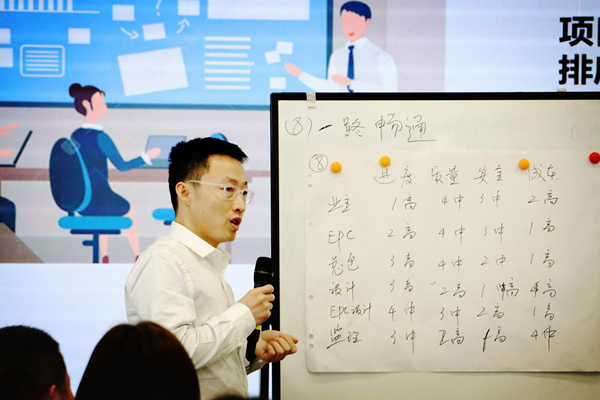 项
排
(8) 一路畅通
⑧
进度 质量 安全 成本
业主 1高 4中 3中 2高
EPC 2高 4中 3中 1高
总包 3高 4中 2中 1高
设计 3高 2高 1高 4高
EPC设计 4中 3中 2高 1高
监理 3中 2高 1高 4中